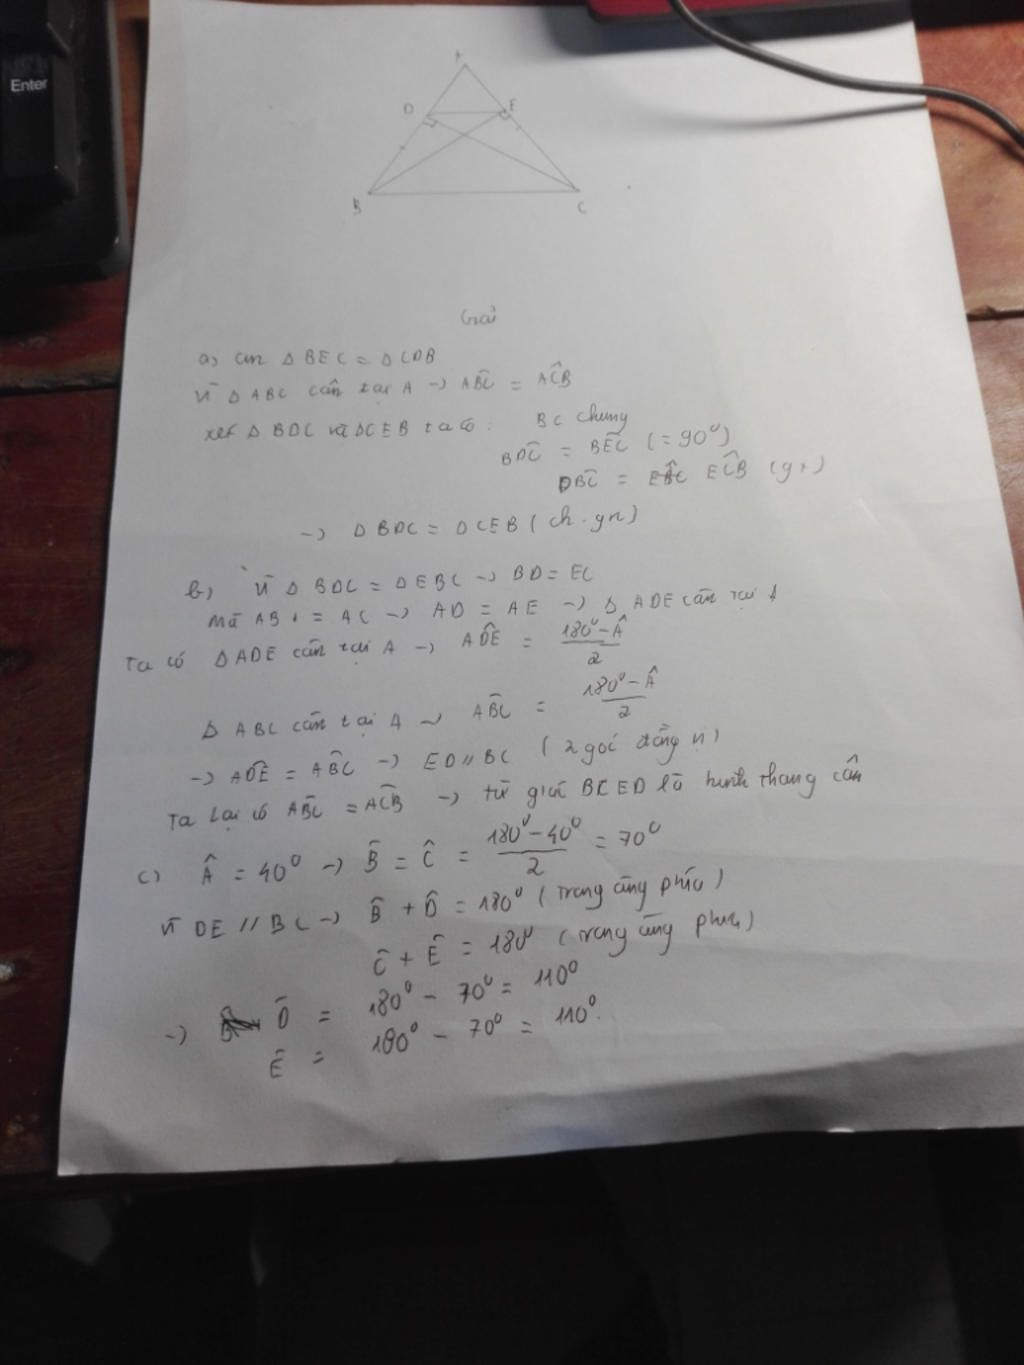 Enter
A
D E
B C
Giải
a) cm Δ BEC = Δ CDB
Vì Δ ABC cân tại A → AB̂C = AĈB
xét Δ BDC và ΔCEB ta có : BC chung
BD̂C = BÊC (= 90⁰)
DB̂C = EĈB (gt)
→ Δ BDC = ΔCEB (ch.gn)
b) Vì Δ BDC = ΔEBC → BD = EC
Mà AB = AC → AD = AE → Δ ADE cân tại A
Ta có ΔADE cân tại A → AD̂E = (180⁰ - Â)/2
Δ ABC cân tại A → AB̂C = (180⁰ - Â)/2
→ AD̂E = AB̂C → ED // BC (2 góc đồng vị)
Ta lại có AB̂C = AĈB → tứ giác BCED là hình thang cân
c) Â = 40⁰ → B̂ = Ĉ = (180⁰ - 40⁰)/2 = 70⁰
Vì DE // BC → B̂ + D̂ = 180⁰ (trong cùng phía)
Ĉ + Ê = 180⁰ (trong cùng phía)
→ D̂ = 180⁰ - 70⁰ = 110⁰
Ê = 180⁰ - 70⁰ = 110⁰.